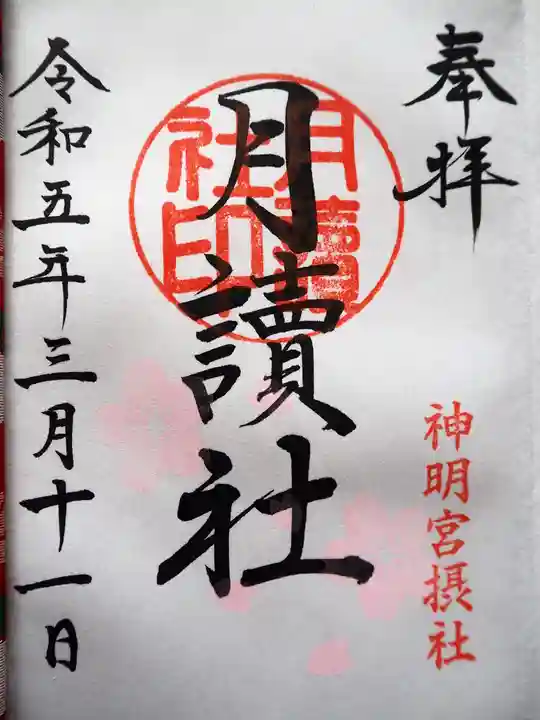 奉拝
神明宮摂社
月讀社
月讀
社印
令和五年三月十一日